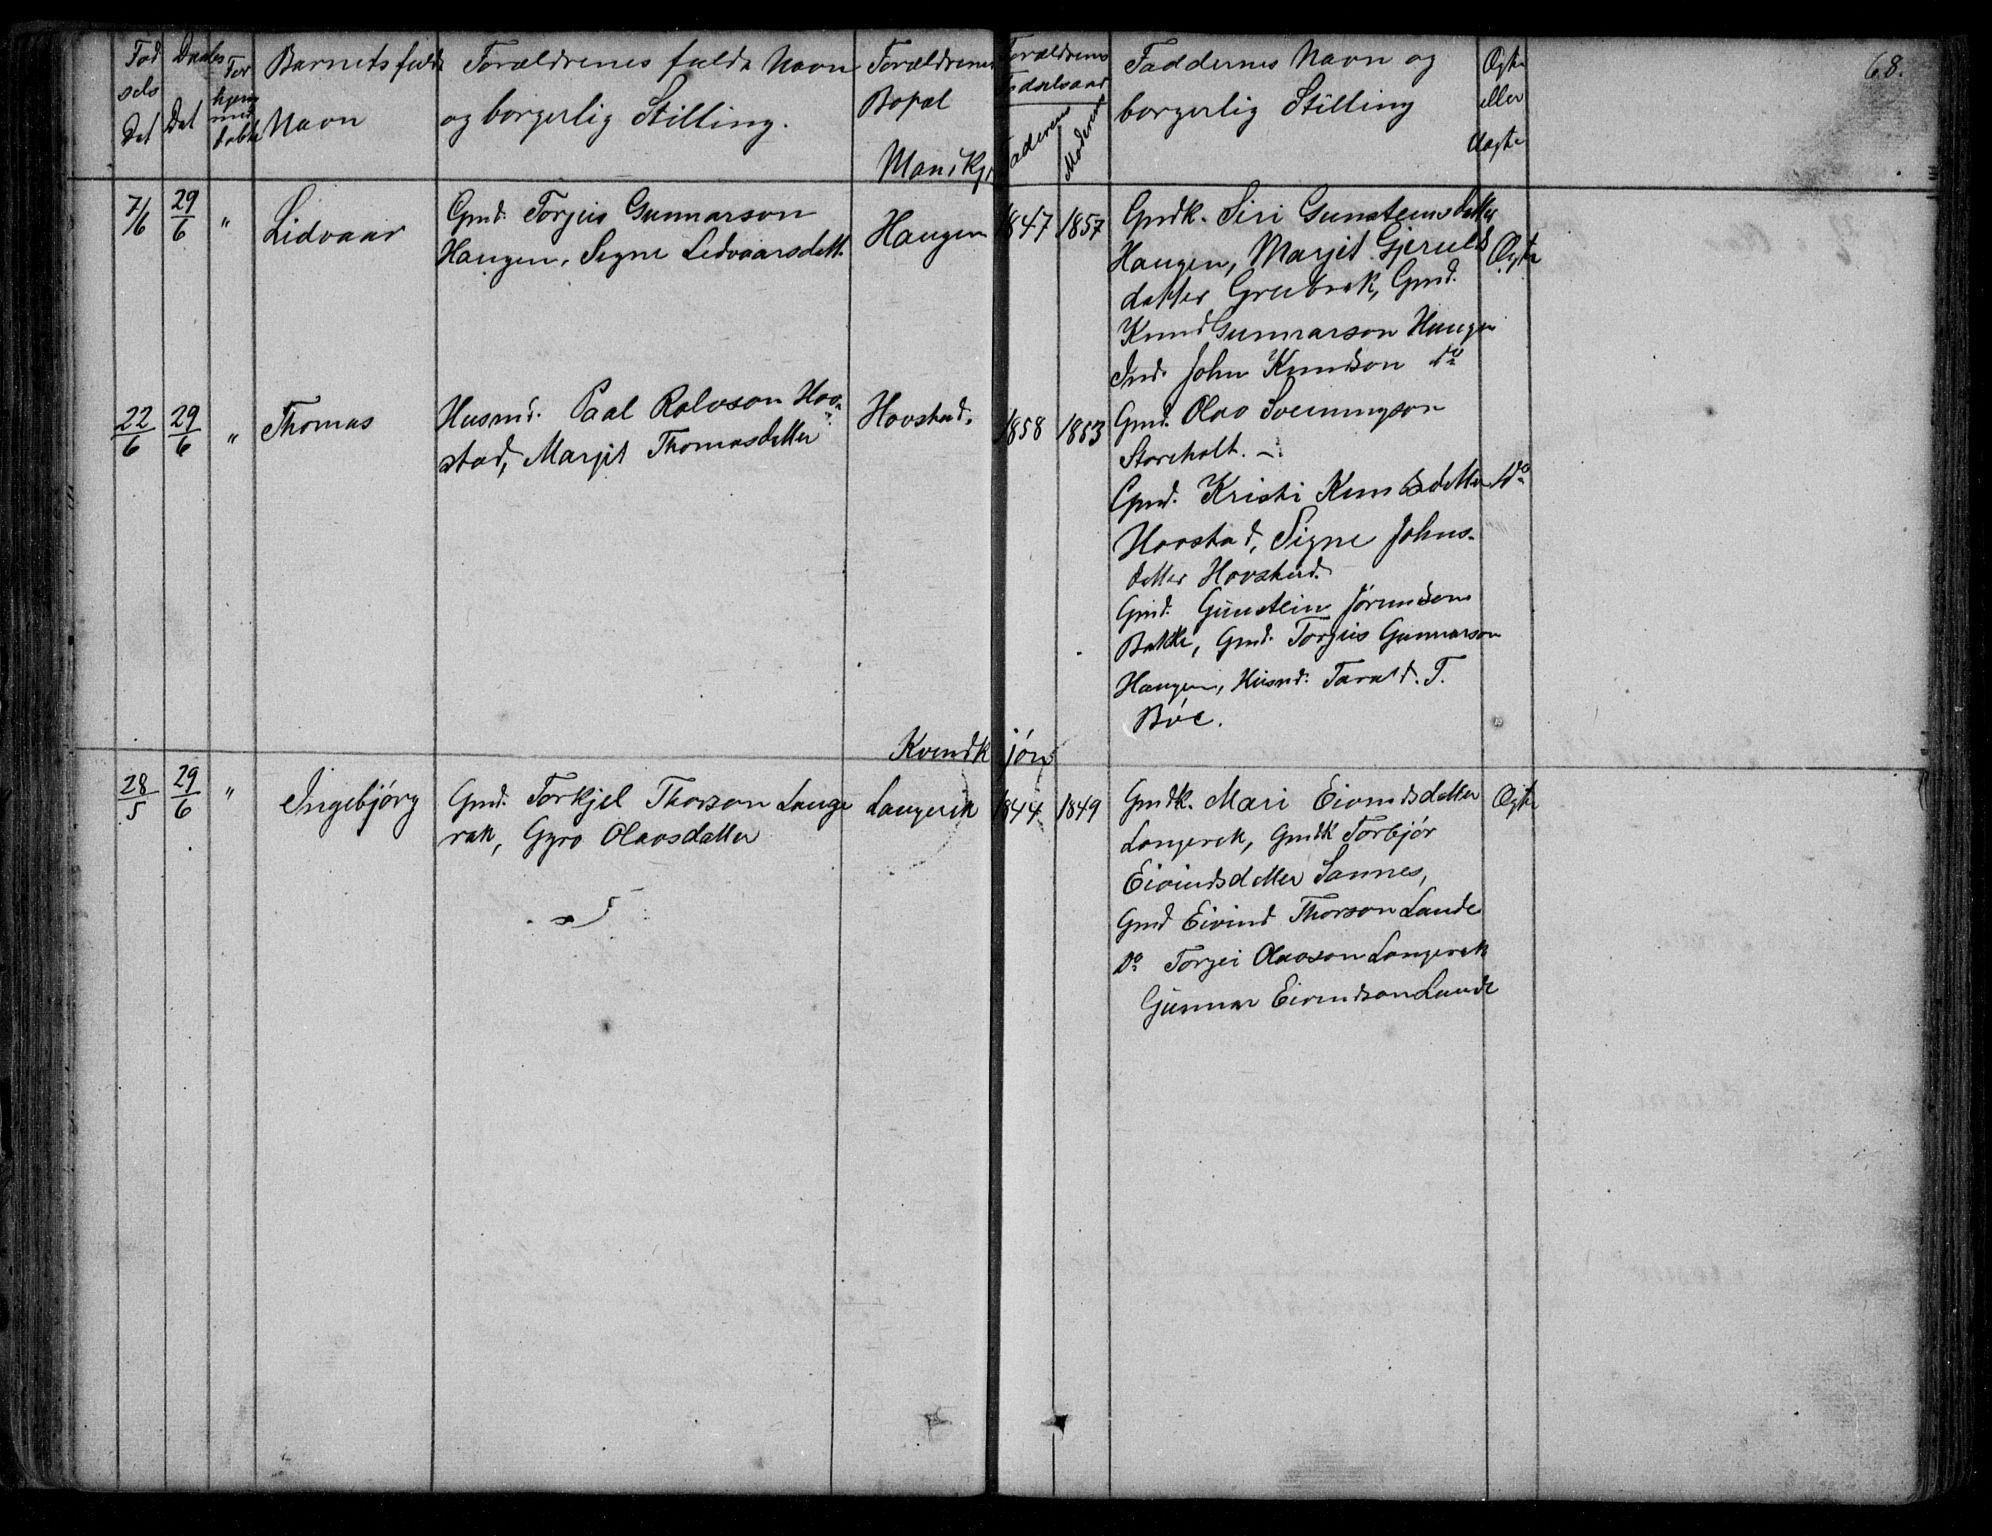 68.
Fød
sels
Dat
Daabs
Dat
For
hjem
med
døbte
Barnets fulde
Navn
Forældrenes fulde Navn
og borgerlig Stilling.
Forældrenes
Bopæl
Mandkj.
Forældrenes
Fødselsaar
Faderens
Moderens
Faddernes Navn og
borgerlig Stilling
Ægte
eller
Uægte
7/6 29/6 " Lidvaar
Gmd. Torjus Gunnarson
Haugen, Signe Lidvaarsdatt.
Haugen 1847 1857
Gmdk. Siri Gunsteinsdatter
Haugen, Marjit Gjerulds
datter Greibrok, Gmd.
Knud Gunnarson Haugen
Ind. John Knudson do
Ægte
22/6 29/6 " Thomas
Husmd. Paal Rolvson Hov-
stad, Marjit Thomasdatter
Hovstad. 1858 1853
Gmd. Olav Sveinungson
Storeholt.
Gmd. Kristi Knudsdatter
Hovstad, Signe Johns-
datter Hovstad.
Gmd. Gunstein Jørundson
Bakke, Gmd. Torjus Gunnarson
Haugen, Husmd. Tarald. T.
Bøe.
do
Kvindkjøn
28/5 29/6 " Ingebjørg
Gmd. Torkjel Thorson Lange
rak, Gyro Olavsdatter
Langerak 1844 1849
Gmdk. Mari Eivindsdatter
Langerak, Gmdk Torbjør
Eivindsdatter Sannes,
Gmd Eivind Thorson Lande
do Torjei Olavson Langerak
Gunnar Eivindson Lande
Ægte